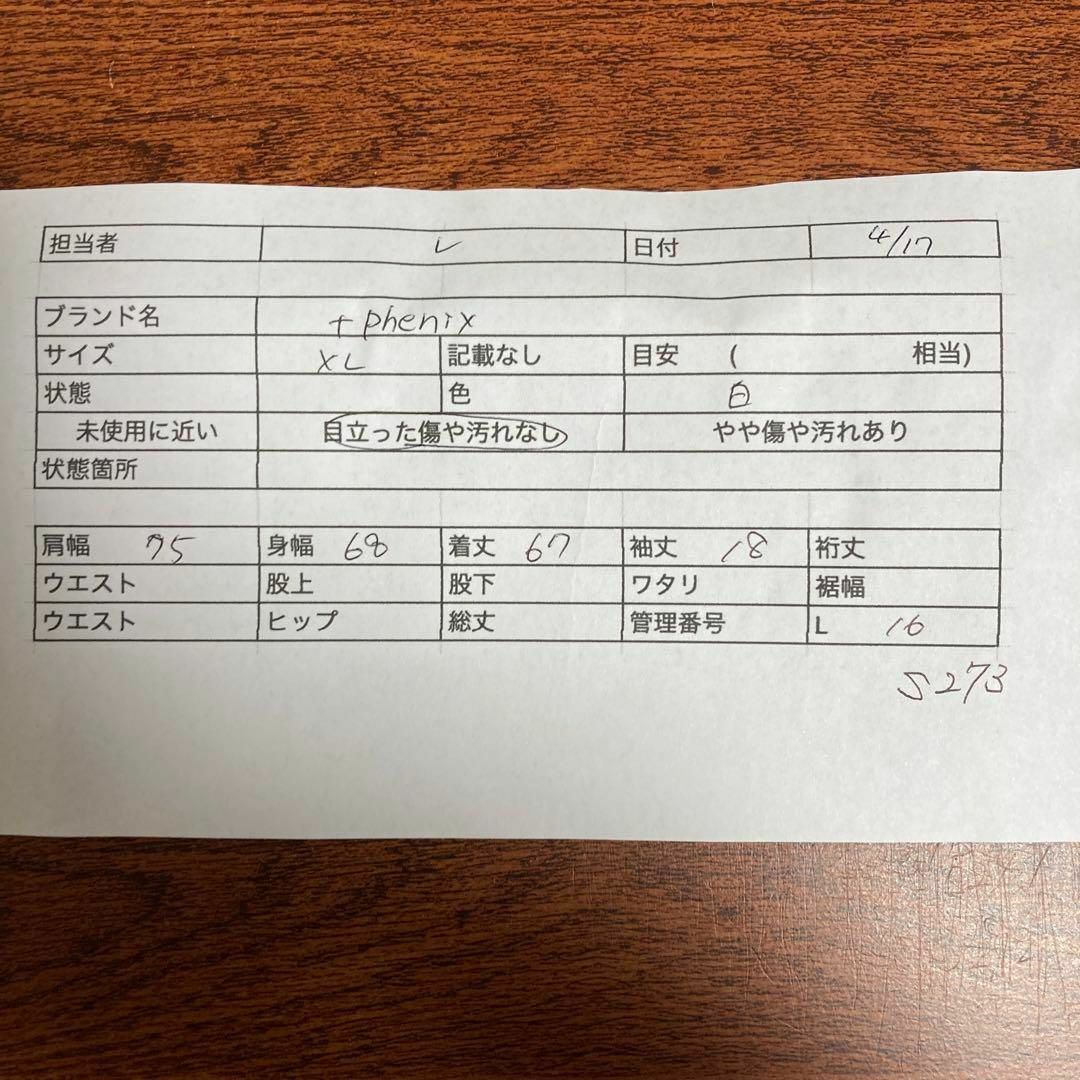 担当者 レ 日付 4/17
ブランド名 +phenix
サイズ XL 記載なし 目安 ( 相当)
状態 色 白
未使用に近い 目立った傷や汚れなし やや傷や汚れあり
状態箇所
肩幅 75 身幅 68 着丈 67 袖丈 18 裄丈
ウエスト 股上 股下 ワタリ 裾幅
ウエスト ヒップ 総丈 管理番号 L 16
S273